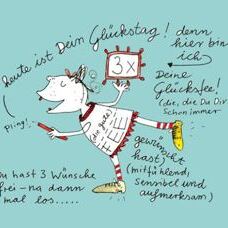 Heute ist Dein Glückstag! denn
hier bin
ich
3x
Deine
Glücksfee!
(die, die Du Dir
schon immer
gewünscht
hast)
(mitfühlend,
sensibel und
aufmerksam)
Pling!
(die gute)
FEE
Du hast 3 Wünsche
frei-na dann
mal los.....